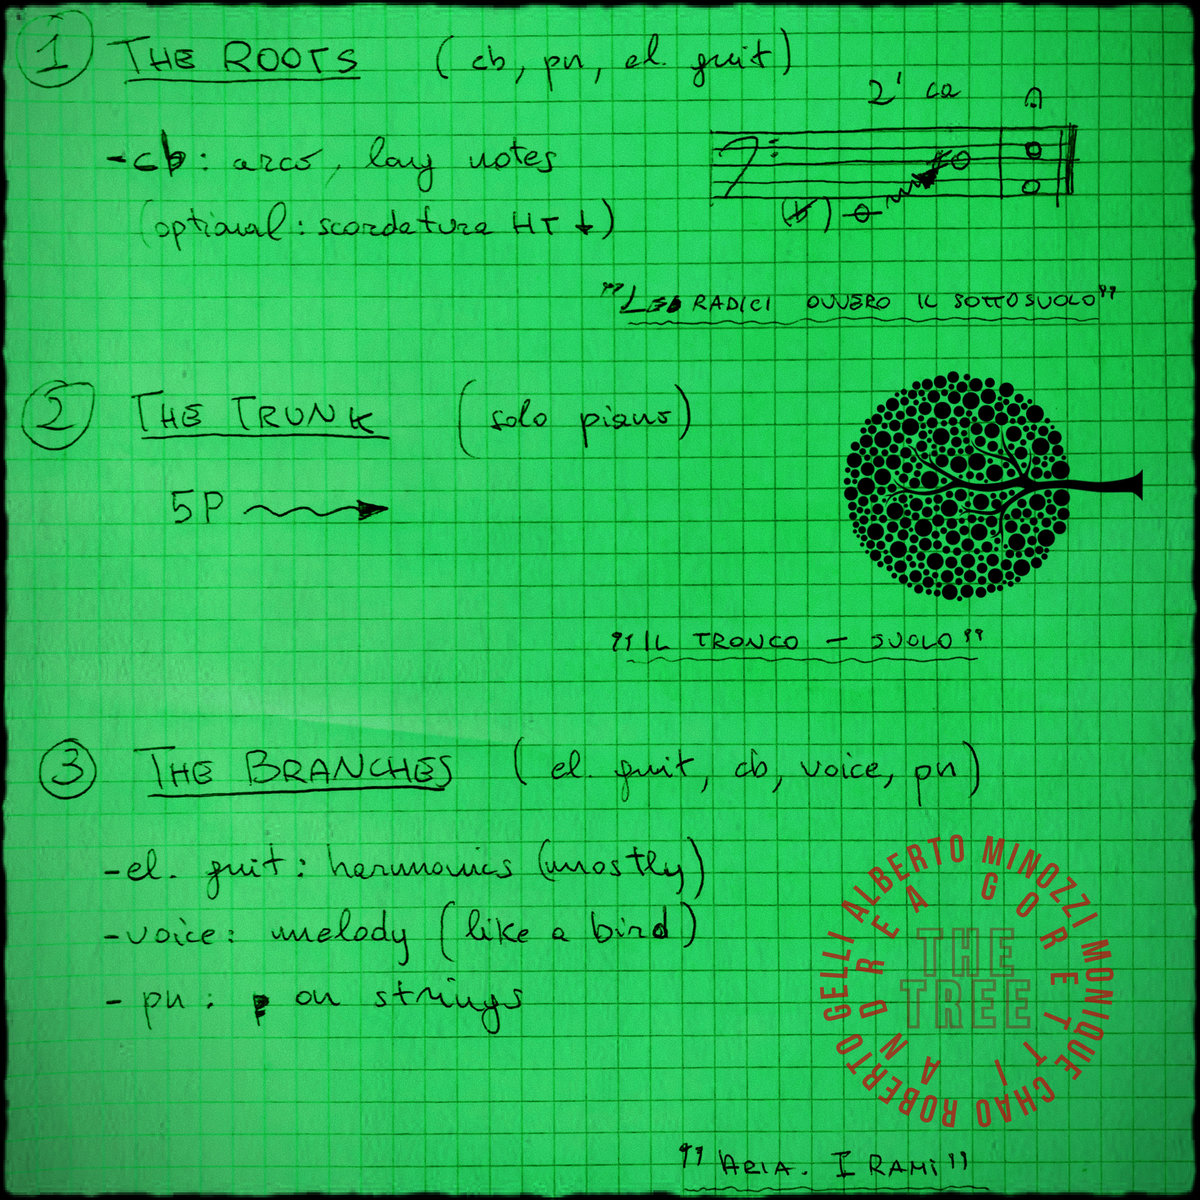 1 THE ROOTS (cb, pn, el. guit)
2' ca
-cb: arco, long notes
(b)
(optional: scordatura HT ↓)
"LE RADICI OVVERO IL SOTTOSUOLO"
2 THE TRUNK (solo piano)
5P
"IL TRONCO - SUOLO"
3 THE BRANCHES (el. guit, cb, voice, pn)
-el. guit: harmonics (mostly)
-voice: melody (like a bird)
- pn: on strings
ROBERTO GELLI ALBERTO MINOZZI MONIQUE CHAO
ANDREA GORETTI
THE
TREE
"ARIA. I RAMI"